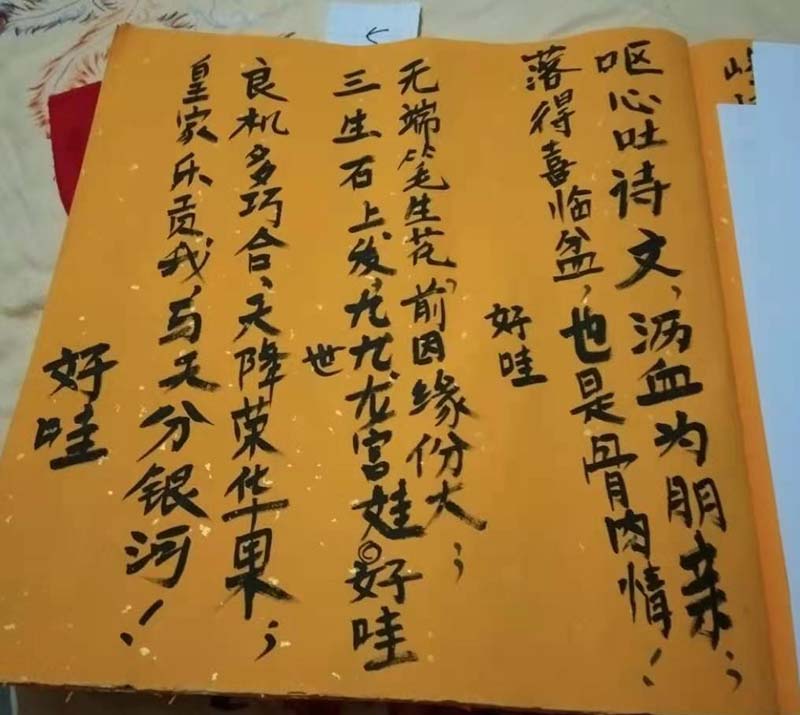 呕心吐诗文，沥血为朋亲；
落得喜临盆，也是骨肉情！
好哇
无端笔生花，前因缘份大；
三生石上发，九九龙宫娃。好哇
世
良机多巧合、天降荣华果；
皇家乐贡我，与天分银河！
好哇